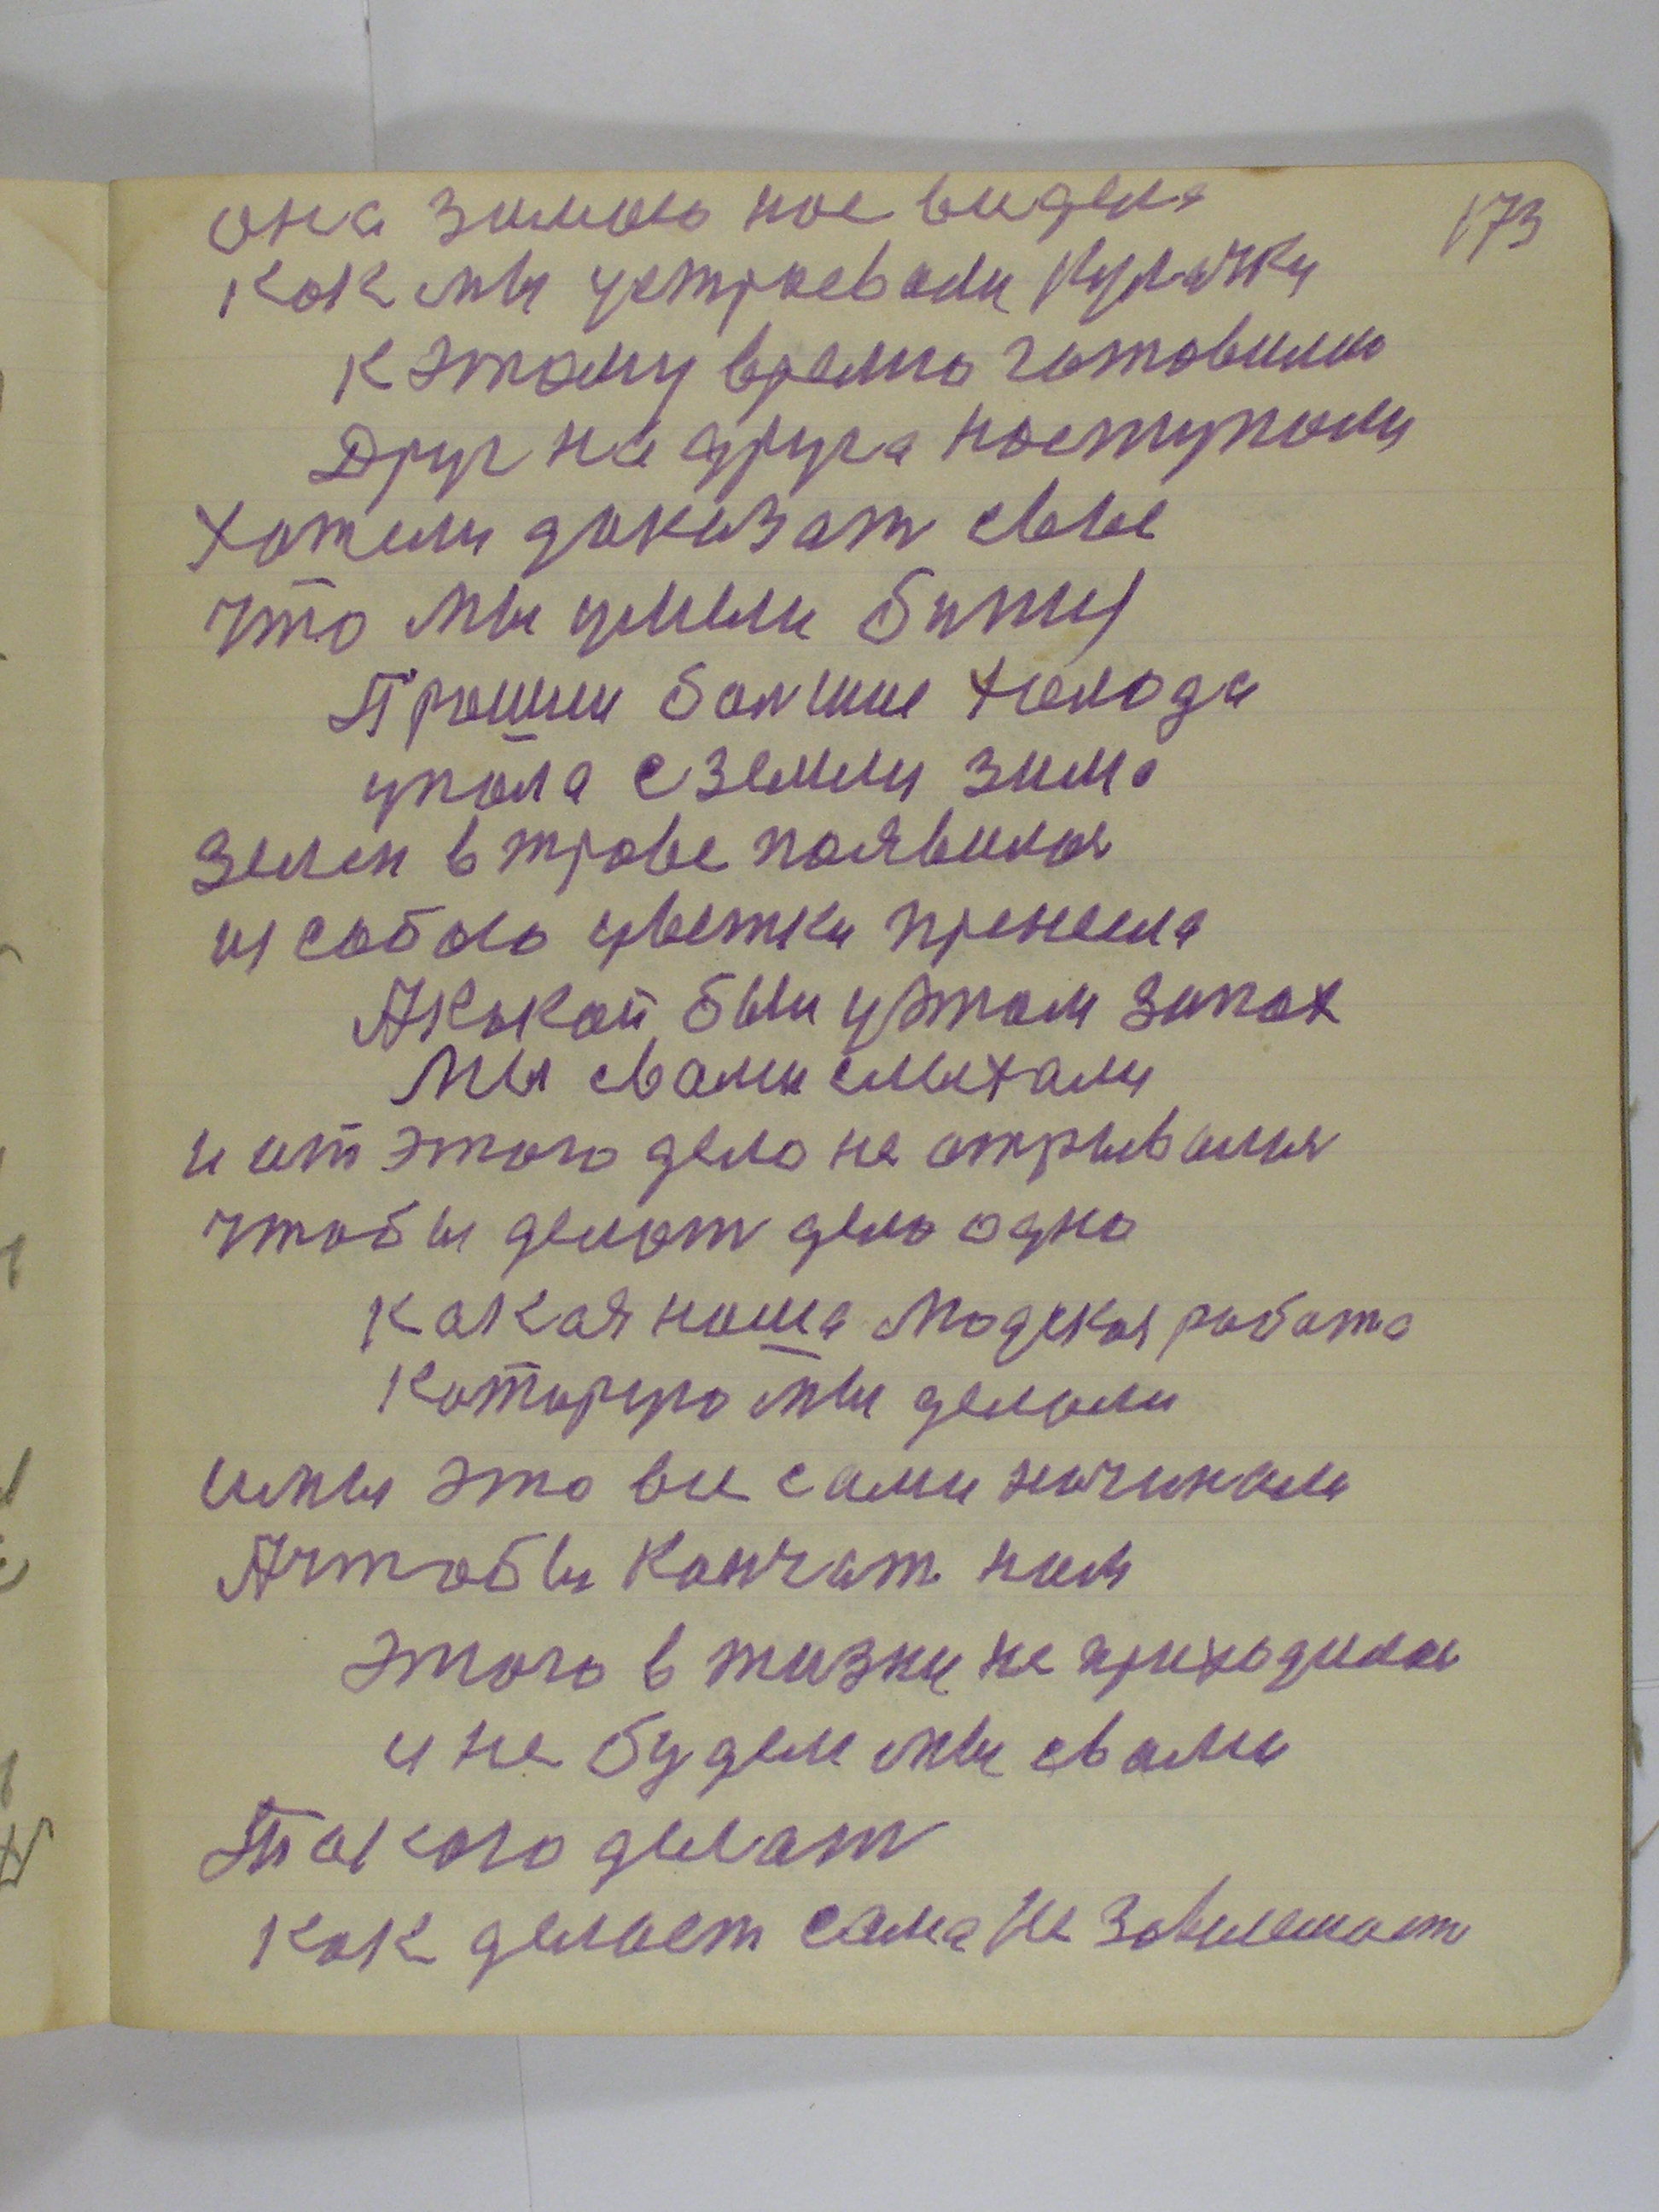 173
она зимою нас видела
как мы устроевали кулачки
к этому время готовилис
Друг на друга наступали
хотели доказат свое
что мы умели бит
Прошли болшие холода
упала с земли зима
Зелен в траве появилас
и с собою цветки принесла
А какой был у этом запах
мы с вами слыхали
и от этого дела не отрывалис
чтобы делат дело одно
какая наша людская работа
которую мы делали
и мы это все сами начинали
А чтобы кончат нам
этого в жизни не приходилос
и не будем мы с вами
такого делат
как делает сама не